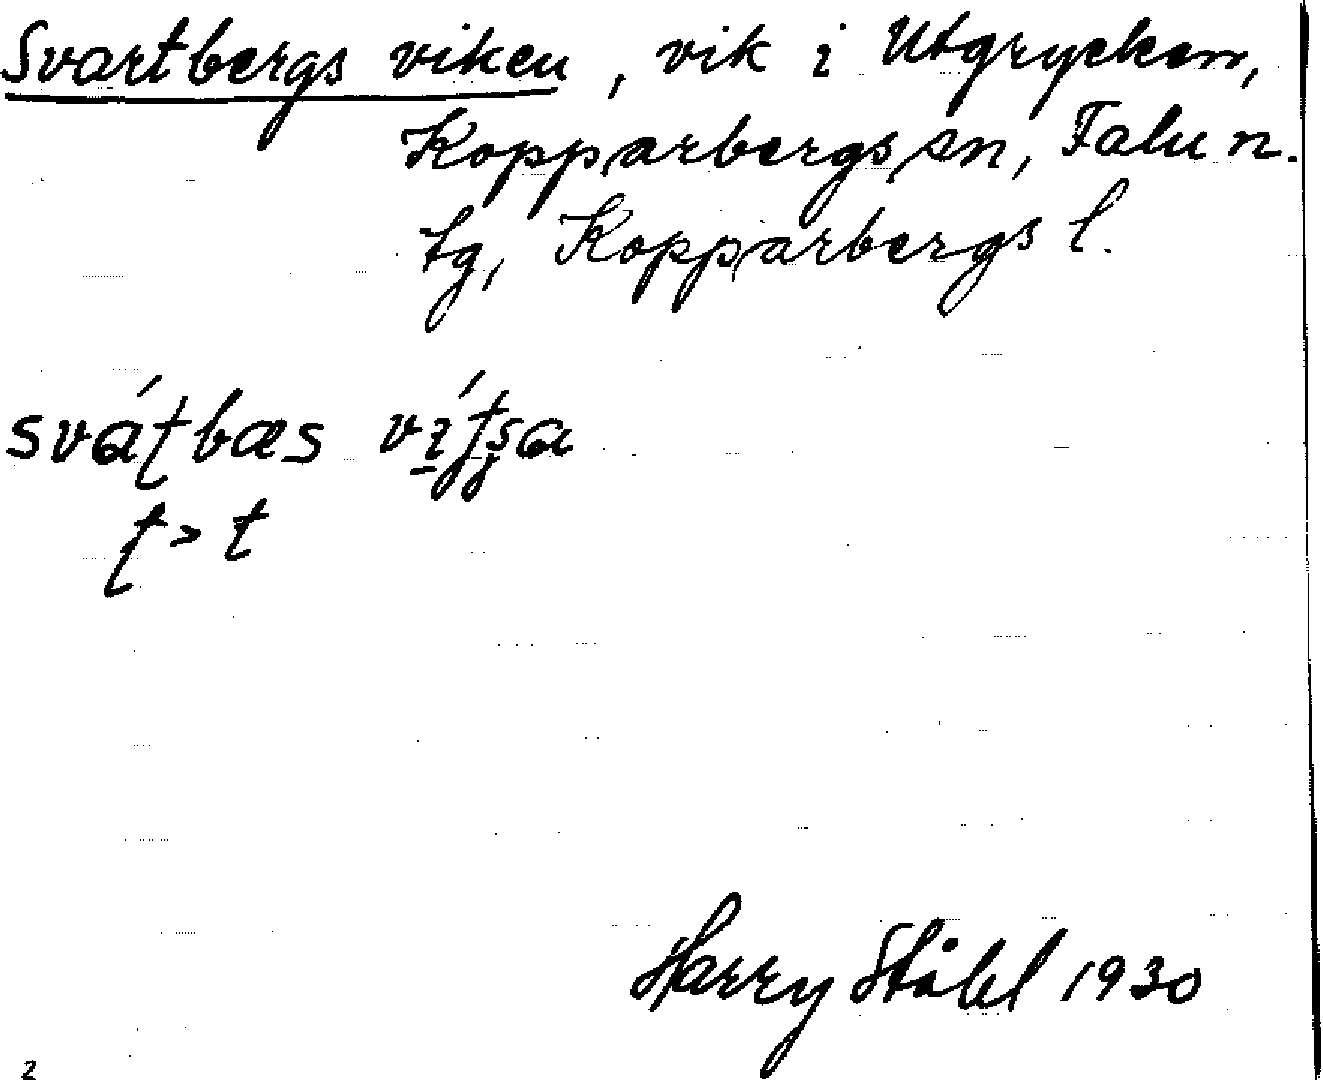 Svartbergs viken, vik i Utgrycken,
Kopparbergs sn, Falu n.
tg, Kopparbergs l.
svát̢bæs vı̱́t̢s̢a
t̢ > t
Harry Ståhl 1930
2